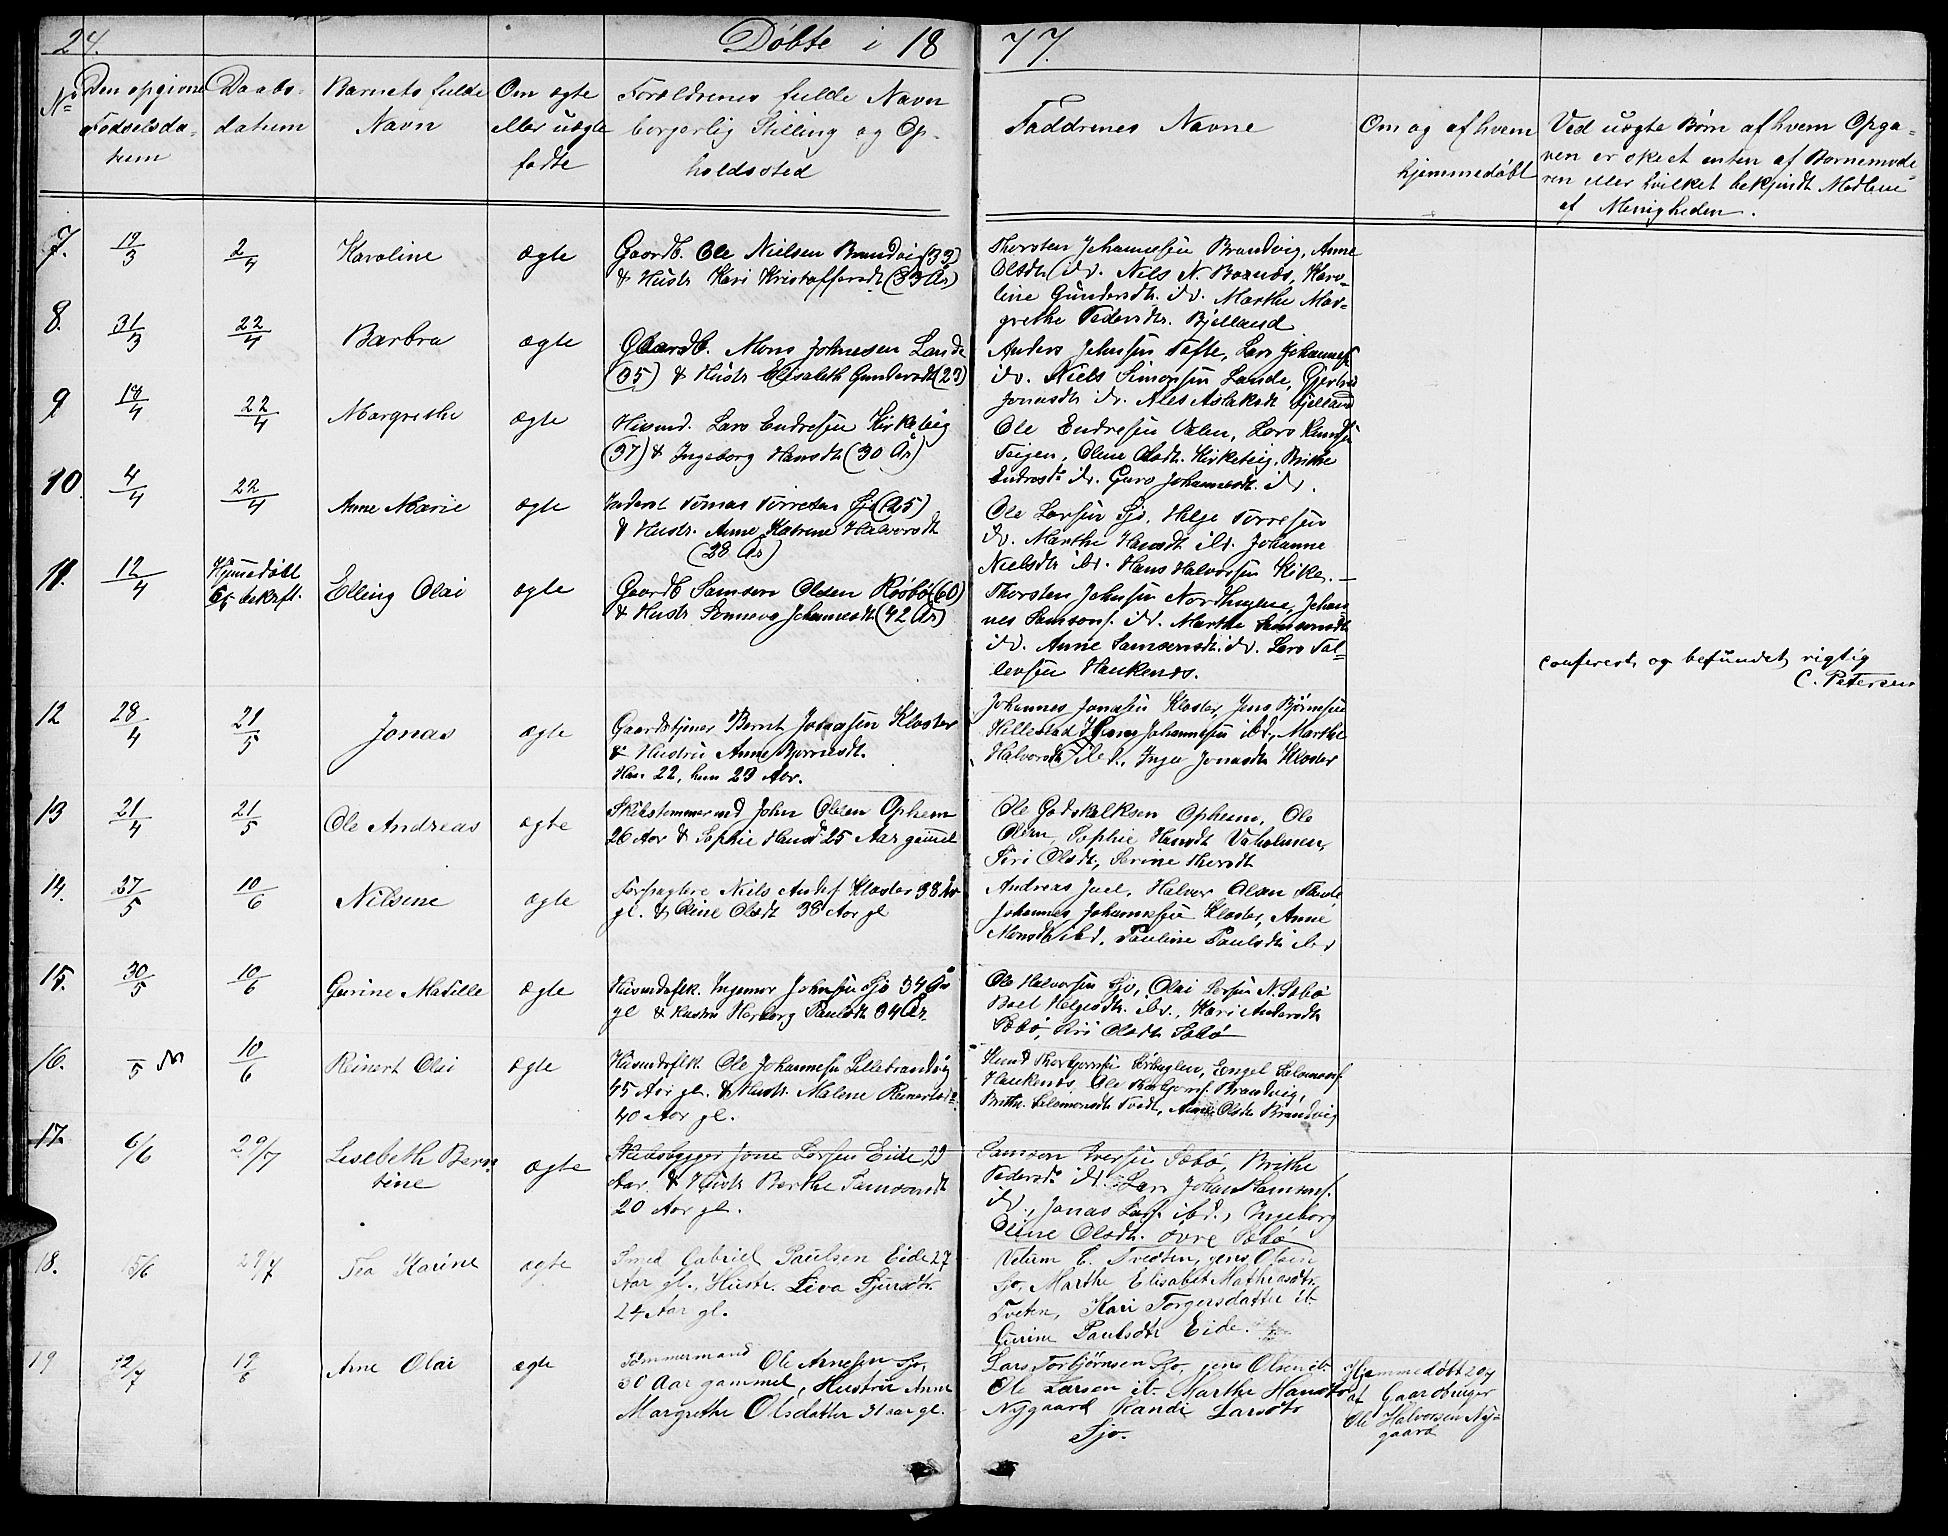 24. Døbte i 18 77.
No
Den opgivne Fødselsda-
tum
Daabs-
datum
Barnets fulde
Navn
Om ægte
eller uægte
fødte
Forældrenes fulde Navn
borgerlig Stilling og Op-
holdssted
Faddrenes Navne
Om og af hvem
hjemmedøbt
Ved uægte Børn af hvem Opga-
ven er skeet enten af Barnemode-
ren eller hvilket bekjendt Medlem
af Menigheden.
7. 19/3 2/4 Karoline ægte
Gaardb. Ole Nielsen Brandvig (33)
& Hustr Kari Kristoffersdt (33 År)
Thorsten Johannesen Brandvig, Anne
Olsdtr idv. Nils N. Boknæs, Karo-
line Gundersdt. idv. Marthe Mar-
grethe Pedersdtr. Bjelland
8. 31/3 22/4 Barbra ægte
Gaardb. Mons Johnesen Lande
(35) & Hustr Elisabeth Gundersdt (23)
Anders Johnsen Tofte, Lars Johannes.
idv. Niels Simonsen Lande,
Jonasdt idv. Aslaksdt Bjelland
9. 18/4 22/4 Margrethe ægte
Husmd. Lars Endresen Kirketeig
(37) & Ingeborg Hansdt (30 År)
Ole Endresen Valen, Lars Knudsen
Teigen, Oline Olsdt. Kirketeig, Brithe
Endresdt idv. Guro Johannesdt. idv.
10 4/4 22/4 Anne Marie ægte
Inderst Tomas Torresen Sjo (25)
& Hustr. Anne Katrine Halvorsdt
(28 År)
Ole Larsen Sjo, Helge Torresen
idv. Marthe Hansdt idv. Johanne
Nielsdtr ibd. Hans Halvorsen Eike.
11. 12/4 Hjemedøbt
bekræft. Elling Olai ægte
Gaardb Samson Olsen Røsbø (60)
& Hustr Sønneva Johannesdt (42 År)
Thorsten Johnsen Nordhuglene, Johan-
nes Samsons. idv. Marthe Samsonsdt
idv. Anne Samsonsdt. idv. Lars Tol-
levsen Haukenæs.
conferert og befundet rigtig
C. Petersen
12 28/4 21/5 Jonas ægte
Gaardstjener Bernt Jonassen Kloster
& Hustru Anne Bjørnsdt.
Han 22, hun 23 Aar.
Johannes Jonasen Kloster, Jens Bjørnsen
Hillestad Hans Johannesen ibd., Marthe
Halvorsdtr ibd., Inger Jonasdtr Kloster
13 21/4 21/5 Ole Andreas ægte
Skibstømmermd John Olsen Opheim
26 Aar & Sophie Hansd 25 Aar gammel
Ole Godskalksen Opheim, Ole
Olsen, Sophie Hansdt Vaholmen,
Siri Olsdt, Serine Iversdt
14. 27/5 10/6 Nilsine ægte
Forpagtere Niels Anders Kloster 38 Aar
gl. & Oline Olsdt 38 Aar gl
Andreas Juel, Halvor Olsen Tande
Johannes Johannesen Kloster, Anne
Monsdt ibd. Pauline Paulsdt ibd
15. 30/5 10/6 Gurine Matille ægte
Husmdsflk. Ingemor Johnsen Sjo 34 År
gl & Hustru Herborg Paulsdt 34 År
Ole Halvorsen Sjo, Olai Larsen N. Sæbø
Boel Helgesdtr ibd., Kari Andersdt
Sæbø, Siri Olsdt Sæbø
16. /5 10/6 Reinert Olai ægte
Husmdsflk Ole Johannesen Lillebrandvig
45 Aar gl. & Hustr. Malene Reinertsdt
40 Aar gl.
Knud Thorbjørnsen Sørhuglen, Engel Salomonsf
Haukenæs, Ole Thorbjørnsf. Brandvig,
Brithe Salomonsdt Tvedt, Anne Olsdtr Brandvig
17. 6/6 29/7 Lisebeth Bern-
tine ægte
Skibsbygger Jone Larsen Eide, 29
Aar & Hustr Berthe Samsonsdt
20 Aar gl.
Samson Iversen Sæbø, Brithe
Pedersdt idv. Lars Johan Hansens.
idv., Jonas Lars. ibd., Ingeborg
Eline Olsdtr. øvre Sæbø
18. 15/6 29/7 Tea Karine ægte
Smed Gabriel Paulsen Eide 27
Aar gl., Hustr. Siva Sjursdtr.
24 Aar gl.
E. Tveten, Jens Olsen
Sjo, Marthe Elisabet Mathiasdtr.
Tveten, Kari Torgersdatter ib.
Gurine Paulsdtr Eide.
19 12/7 19/8 Arne Olai ægte
Tømmermand Ole Arnesen Sjo,
30 Aar gammel, Hustru Anne
Margrethe Olsdatter 31 aar gl.
Lars Torbjørnsen Sjo, Jens Olsen ib.
Ole Larsen ib. Marthe Hansdtr
Nygaard Randi Larsdtr
Sjo.
Hjemmedøbt 20/7
af Gaardbruger
Ole Halvorsen Ny-
gaard